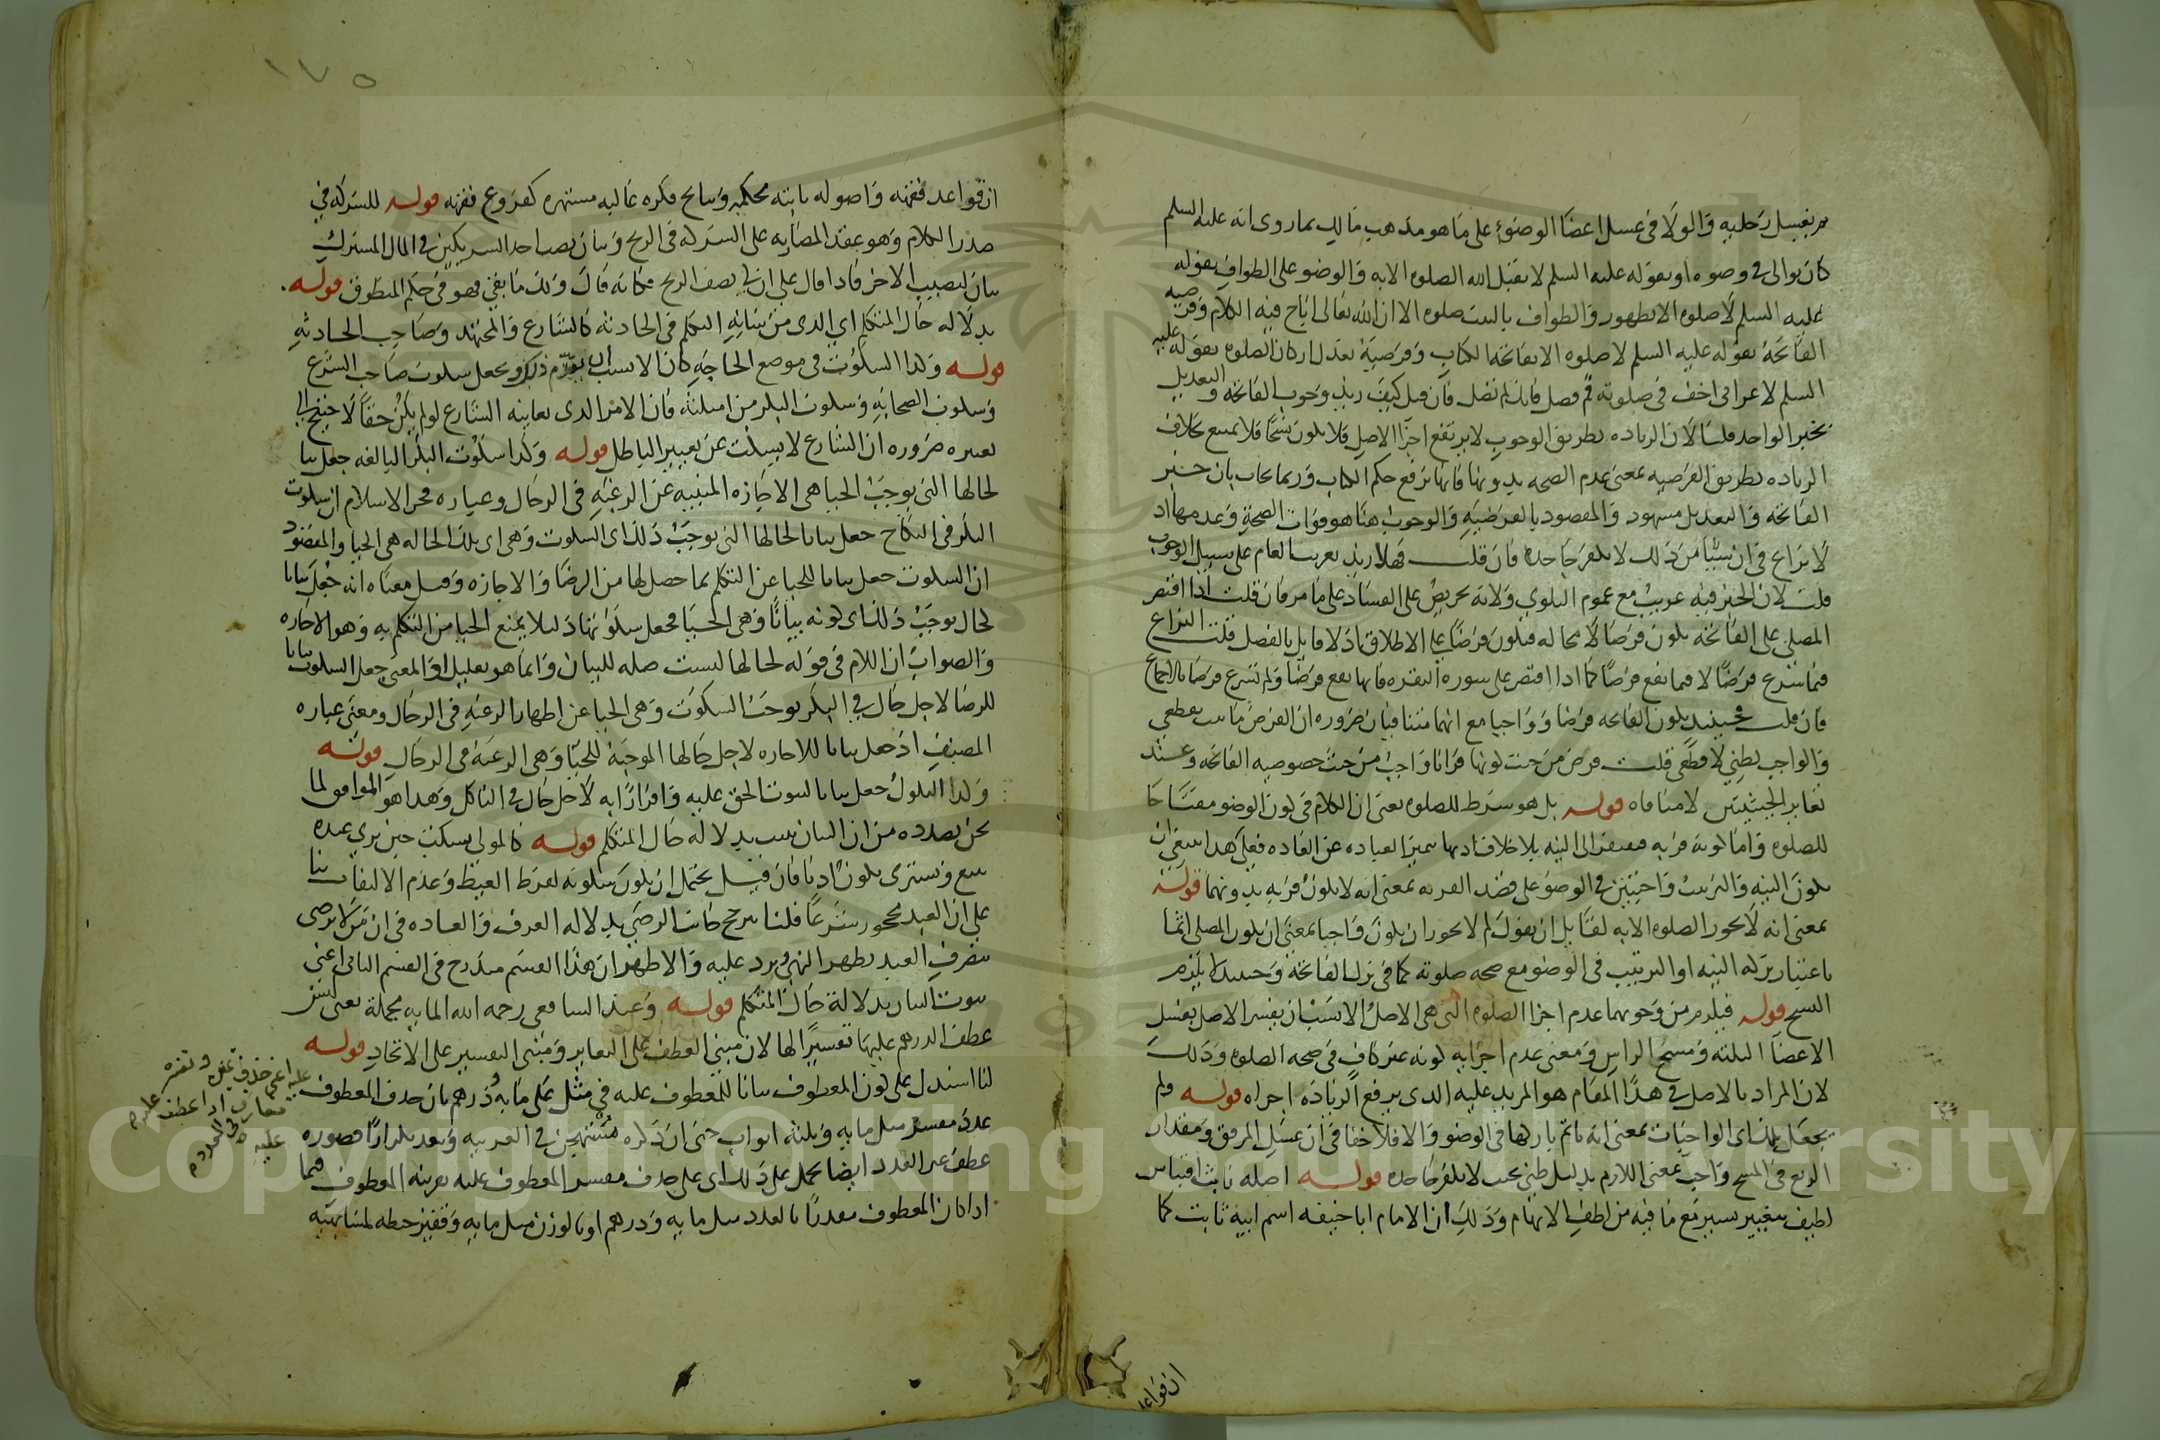 ثم يغسل رجليه والولا في غسل اعضا الوضوء على ما هو مذهب مالك بما روى انه عليه السلم
كان يوالى في وضوه او بقوله عليه السلم لا يقبل الله الصلوه الابه والوضو على الطواف بقوله
عليه السلم لا صلوه الا بطهور والطواف بالبيت صلوه الا ان الله تعالى اباح فيه الكلام وفرضيه
الفاتحة بقوله عليه السلم لا صلوه الا بفاتحه الكتاب وفرضية تعديل اركان الصلوه بقوله عليه
السلم لاعرابي اخف في صلوته قم فصل فانك لم تصل فان قيل كيف زيد وجوب الفاتحه والتعديل
بخبر الواحد قلنا لان الزياده بطريق الوجوب لا يرتفع اجزا الاصل فلا يكون نسخا فلا يمتنع بخلاف
الزياده بطريق الفرضيه بمعنى عدم الصحه بدونها فانها ترفع حكم الكتاب وربما يجاب بان خبر
الفاتحه والتعديل مشهود والمقصود بالفرضيه والوجوب هنا هو فوات الصحة وعدمها اذ
لا نزاع في ان شيا من ذلك لا يكفر جاحده فان قلت فهلا زيد تعريبا لعام على سبيل الوجوب
قلت لان الخبر فيه غريب مع عموم البلوى ولانه تحريض على الفساد على ما مر فان قلت اذا اقتصر
المصلى على الفاتحه يكون فرضا لا محاله فيكون فرضا على الاطلاق اذ لا قايل بالفصل قلت النزاع
فيما شرع فرضا لا فيما يقع فرضا كما اذا اقتصر على سوره البقره فانها يقع فرضا ولم تشرع فرضا بالاجماع
فان قلت فحينيذ يكون الفاتحه فرضا وواجبا مع انهما متنافيان ضروره ان الفرض ما ثبت بقطعي
والواجب بظني لا قطعي قلت فرض من حيث كونها قرانا واجب من حيث خصوصيه الفاتحه وعند
تغاير الحيثيتين لا منافاه قوله بل هو شرط للصلوه يعنى ان الكلام في كون الوضو مفتاحا
للصلوه واما كونه قربه فمفتقر الى النيه بلا خلاف اذ بها تميز العباده عن العاده فعلى هذا ينبغي ان
يكون النيه والترتيب واجبتين في الوضو على قصد القربه بمعنى انه لا يكون قربه بدونهما قوله
بمعنى انه لا يجوز الصلوه الابه لقايل ان يقول لم لا يجوز ان يكون واجبا بمعنى ان يكون المصلى اثما
باعتبار تركه النيه او الترتيب في الوضو مع صحه صلوته كما في ترك الفاتحة وحينيذ لا يلزم
النسخ قوله فيلزم من وجوبهما عدم اجزا الصلوه التي هي الاصل الانسب ان يفسر الاصل بغسل
الاعضا الثلثه ومسح الراس ومعنى عدم اجزايه كونه غير كاف في صحه الصلوه وذلك
لان المراد بالاصل في هذا المقام هو المزيد عليه الذى يرفع الزيادة اجزاه قوله ولم
يجعل كذلك اى الواجبات بمعنى انه ياثم تاركها في الوضو والا فلا خفا في ان غسل المرفق ومقدار
الربع في المسح واجب بمعنى اللازم بدليل ظني بحيث لا يكفر جاحده قوله اصله ثابت اقتباس
لطيف بتغيير يسير مع ما فيه من لطف الايهام وذلك ان الامام ابا حنيفه اسم ابيه ثابت كما
ان قواعد
١٧٥
ان قواعد فقهه واصوله ثابته محكمه ونتايج فكره عاليه مشتهره كفروع فقهه قوله للشركه في
صدر الكلام وهو عقد المضاربه على الشركه في الربح وبيان نصيب احد الشريكين في المال المشترك
بيان لنصيب الاخر فاذا قال على ان لي نصف الربح فكانه قال ولك ما بقي فهو في حكم المنطوق قوله
بدلاله حال المتكلم اي الذى من شانه التكلم في الحادثه كالشارع والمجتهد وصاحب الحادثه
قوله وكذا السكوت في موضع الحاجه كان الانسب تقديم ذلك ويجعل سكوت صاحب الشرع
وسكوت الصحابه وسكوت البكر من امثلته فان الامر الذى يعاينه الشارع لو لم يكن حقا لاحتيج الى
تغييره ضروره ان الشارع لا يسكت عن تغيير الباطل قوله وكذا سكوت البكر البالغه جعل بيانا
لحالها التي توجب الحيا هي الاجازه المنبيه عن الرغبه في الرجال وعباره فخر الاسلام ان سكوت
البكر في النكاح جعل بيانا لحالها التي توجب ذلك اى السكوت وهي اى تلك الحاله هي الحيا والمقصود
ان السكوت جعل بيانا للحيا عن التكلم بما حصل لها من الرضا والاجازه وقيل معناه انه جعل بيانا
لحال توجب ذلك اى كونه بيانا وهي الحيا فجعل سكوتها دليلا يمنع الحيا من التكلم به وهو الاجازه
والصواب ان اللام في قوله لحالها ليست صله للبيان وانما هو تعليل والمعنى جعل السكوت بيانا
للرضا لاجل حال في البكر توجب السكوت وهي الحيا عن اظهار الرغبه في الرجال ومعنى عباره
المصنف اذ جعل بيانا للاجازه لاجل حالها الموجبة للحيا وهي الرغبه في الرجال قوله
وكذا النكول جعل بيانا لثبوت الحق عليه واقرارا به لاجل حال في الناكل وهذا هو الموافق لما
نحن بصدده من ان البيان يثبت بدلاله حال المتكلم قوله كالمولى يسكت حين يرى عبده
يبيع ويشترى يكون اذنا فان قيل يحتمل ان يكون سكوته لفرط الغيظ وعدم الالتفات بنا
على ان العبد محجور شرعا قلنا يترجح جانب الرضى بدلاله العرف والعاده في ان من لا يرضى
بتصرف العبد يظهر النهي ويرد عليه والاظهر ان هذا القسم مندرج في القسم الثاني اعني
ثبوت البيان بدلالة حال المتكلم قوله وعند الشافعي رحمه الله المايه مجملة يعنى ليس
عطف الدرهم عليها تفسيرا لها لان مبنى العطف على التغاير ومبنى التفسير على الاتحاد قوله
لنا استدل على كون المعطوف بيانا للمعطوف عليه في مثل على مايه ودرهم بان حذف المعطوف
عليه اعنى حذف تميزه وتفسيره
متعارف اذا عطف عليه
عدد مفسر مثل مايه وثلثه اثواب حتى ان ذكره مستهجن في العربيه ويعد تكرارا فصوره
عطف غير العدد ايضا يحمل على ذلك اى على حذف مفسر المعطوف عليه بقرينه المعطوف فيما
اذا كان المعطوف مقدرا بالعدد مثل مايه ودرهم او بالوزن مثل مايه وقفيز حنطه لمشابهته